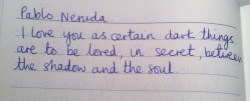 Pablo Neruda
I love you as certain dark things
are to be loved, in secret, between
the shadow and the soul.